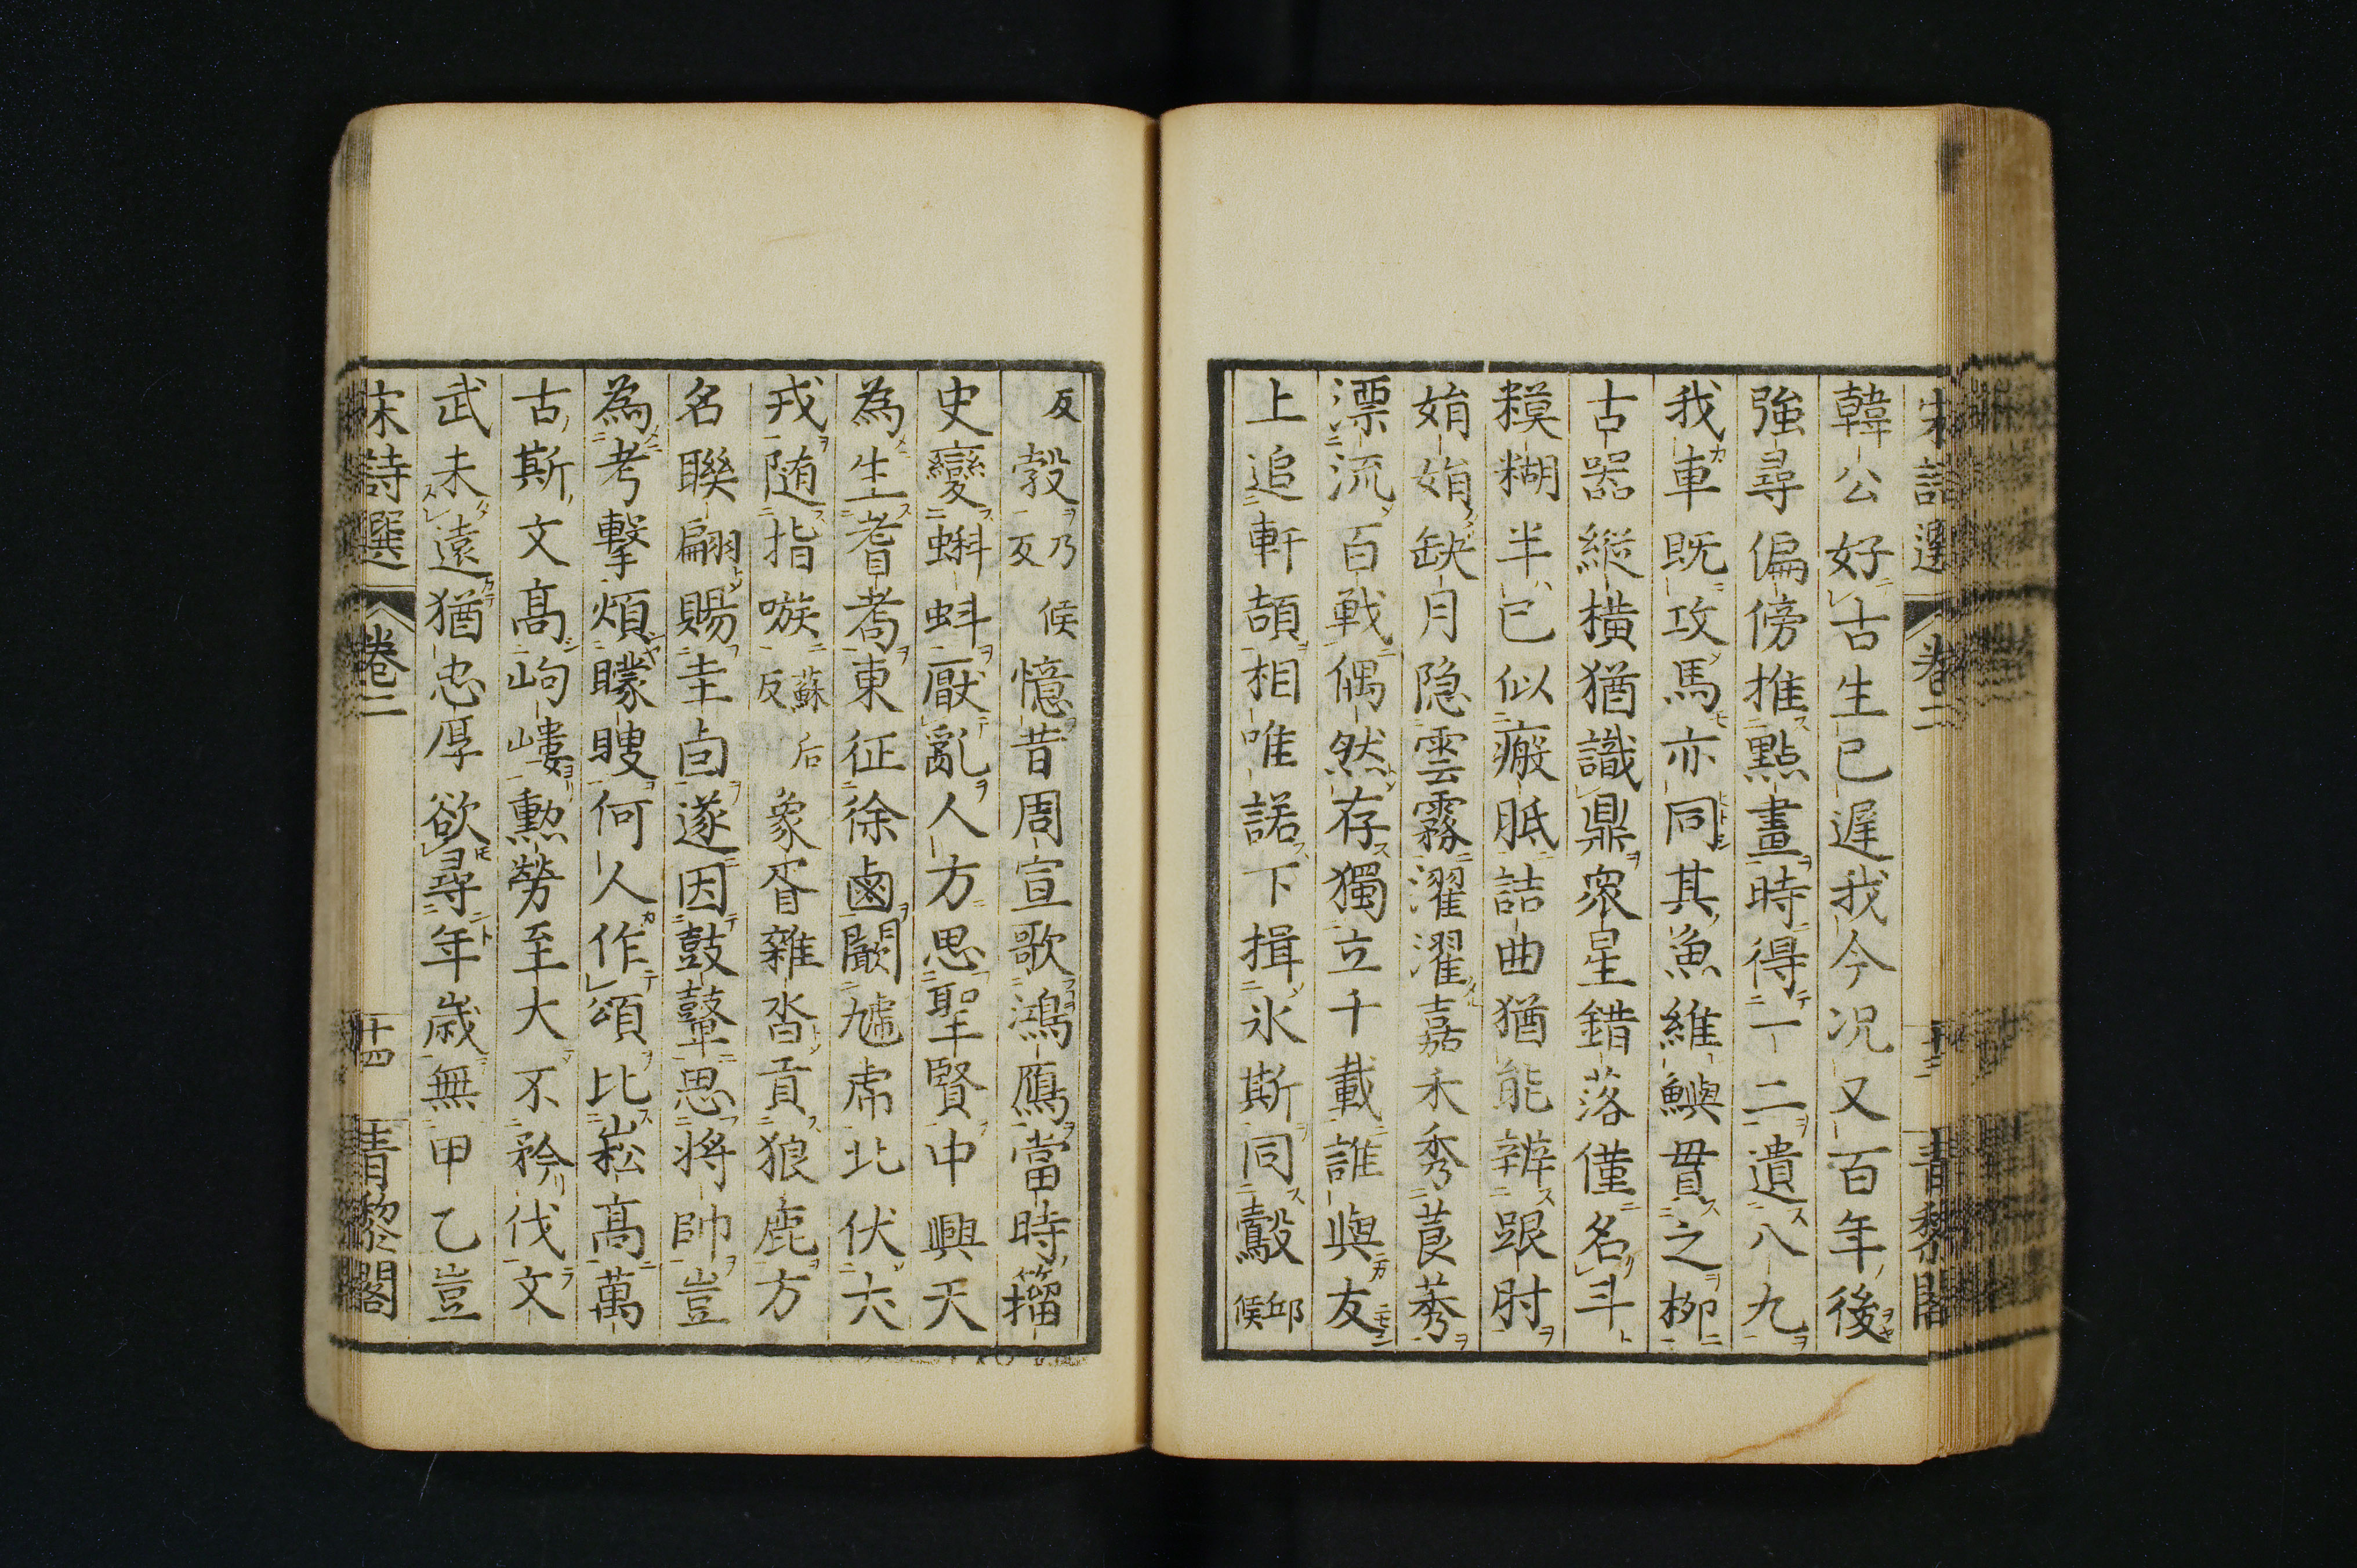 宋詩選 卷二 十三 青黎閣
韓公好古生已遲我今况又百年後
強尋偏傍推點畫時得一二遺八九
我車既攻馬亦同其魚維鱮貫之柳
古器縱橫猶識鼎衆星錯落僅名斗
糢糊半已似瘢胝詰曲猶能辨跟肘
娟娟缺月隐雲霧濯濯嘉禾秀莨莠
漂流百戰偶然存獨立千載誰與友
上追軒頡相唯諾下揖氷斯同鷇 邱候
反 穀 乃候反 憶昔周宣歌鴻鴈當時籀
史變蝌蚪厭亂人方思聖賢中興天
為生耆耇東征徐鹵闞虓虎北伏犬
戎随指嗾 蘇后反 象胥雜沓貢狼鹿方
名聯翩賜圭卣遂因鼓鼙思將帥豈
為考擊煩矇瞍何人作頌比崧高萬
古斯文髙岣嶁勲勞至大不矜伐文
武未遠猶忠厚欲尋年歳無甲乙豈
宋詩選 卷二 十四 青黎閣